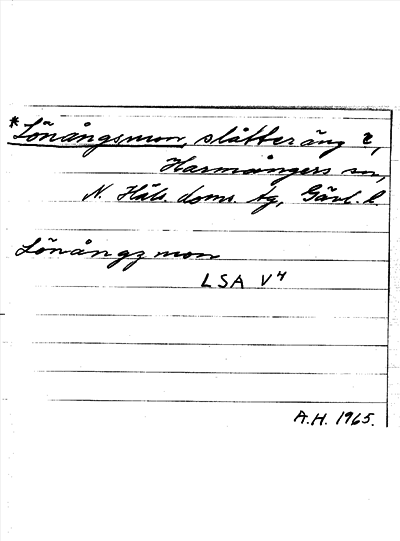 *Lönångsmon, slåtteräng ?,
Harmångers sn,
N. Häls. doms. tg, Gävl. l.
Lönångz mon
LSA V4
A.H. 1965.